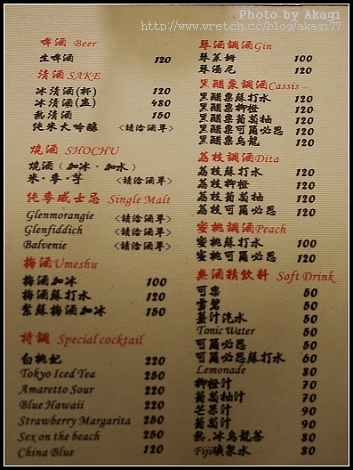 Photo by Akagi
http://www.wretch.cc/blog/akagi77
啤酒 Beer
生啤酒 120
清酒 SAKE
冰清酒(杯) 120
冰清酒(壺) 480
熱清酒 150
純米大吟釀 <請洽酒單>
燒酒 SHOCHU
燒酒(加冰·加水)
米·麥·芋 <請洽酒單>
純麥威士忌 Single Malt
Glenmorangie <請洽酒單>
Glenfiddich <請洽酒單>
Balvenie <請洽酒單>
梅酒 Umeshu
梅酒加冰 100
梅酒蘇打水 120
紫蘇梅酒加冰 150
特調 Special cocktail
白桃妃 220
Tokyo Iced Tea 250
Amaretto Sour 220
Blue Hawaii 220
Strawberry Margarita 250
Sex on the beach 250
China Blue 120
琴酒調酒 Gin
琴萊姆 100
琴湯尼 120
黑醋栗調酒 Cassis
黑醋栗蘇打水 120
黑醋栗柳橙 120
黑醋栗葡萄柚 120
黑醋栗可爾必思 120
黑醋栗烏龍 120
荔枝調酒 Dita
荔枝蘇打水 120
荔枝柳橙 120
荔枝葡萄柚 120
荔枝可爾必思 120
蜜桃調酒 Peach
蜜桃蘇打水 120
蜜桃可爾必思 120
無酒精飲料 Soft Drink
可樂 50
雪碧 50
薑汁汽水 50
Tonic Water 50
可爾必思 50
可爾必思蘇打水 60
Lemonade 80
柳橙汁 70
葡萄柚汁 70
芒果汁 90
葡萄汁 90
熱.冰烏龍茶 80
Fiji礦泉水 80